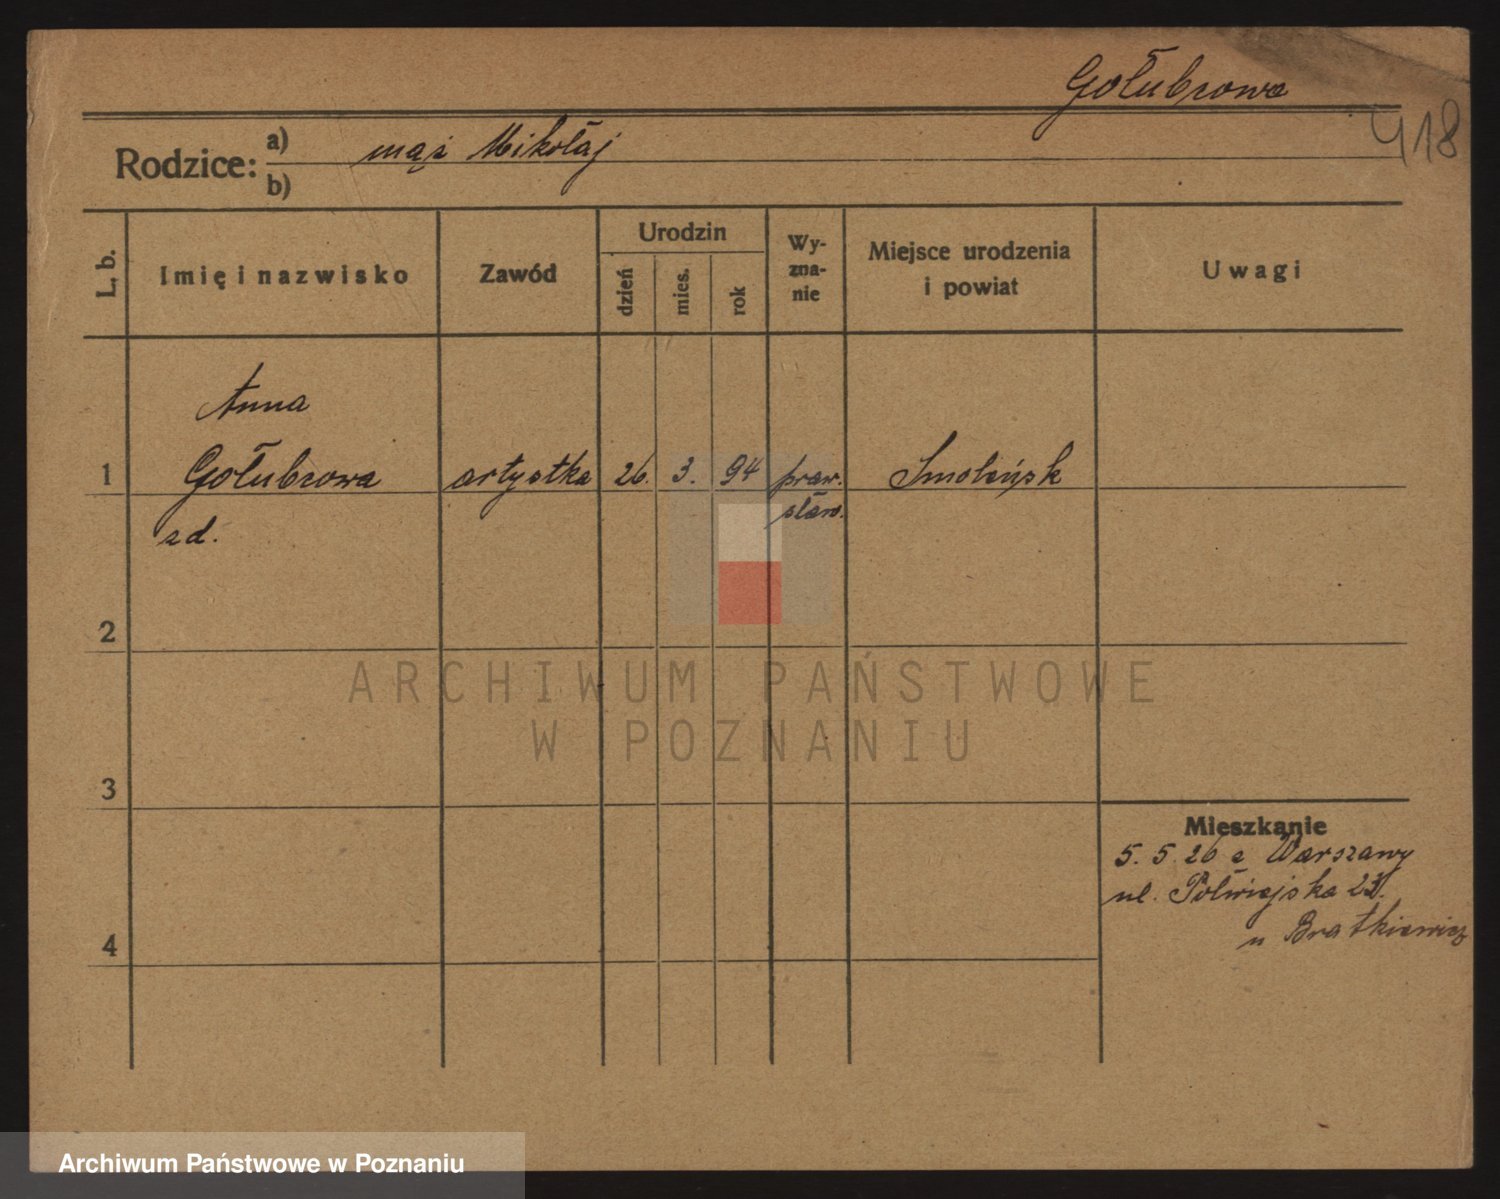 Gołubzowa
418
Rodzice: a) mąż Mikołaj
b)
L. b.
Imię i nazwisko
Zawód
Urodzin
dzień
mies.
rok
Wy-
zna-
nie
Miejsce urodzenia
i powiat
Uwagi
Anna
1 Gołubzowa artystka 26. 3. 94 praw. Smoleńsk
sław.
zd.
2
ARCHIWUM PAŃSTWOWE
W POZNANIU
3
Mieszkanie
5. 5. 26 z Warszawy
ul. Półwiejska 23.
u Bratkiewicz
4
Archiwum Państwowe w Poznaniu